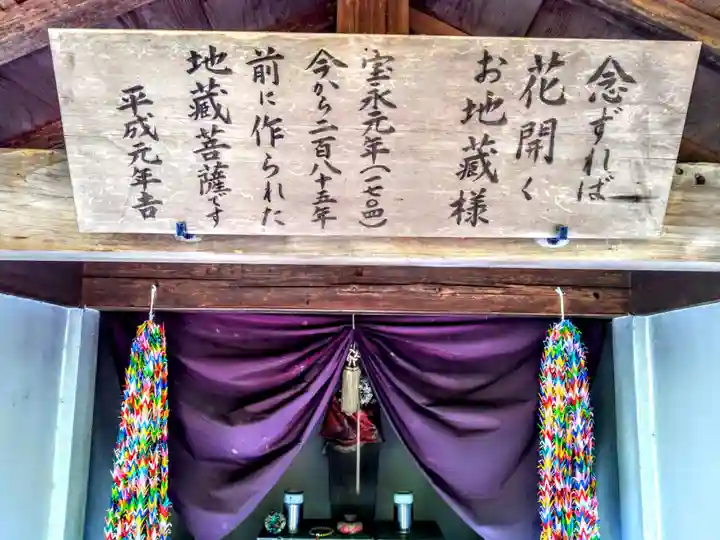 念ずれば
花開く
お地蔵様
宝永元年(一七〇四)
今から二百八十五年
前に作られた
地蔵菩薩です
平成元年吉